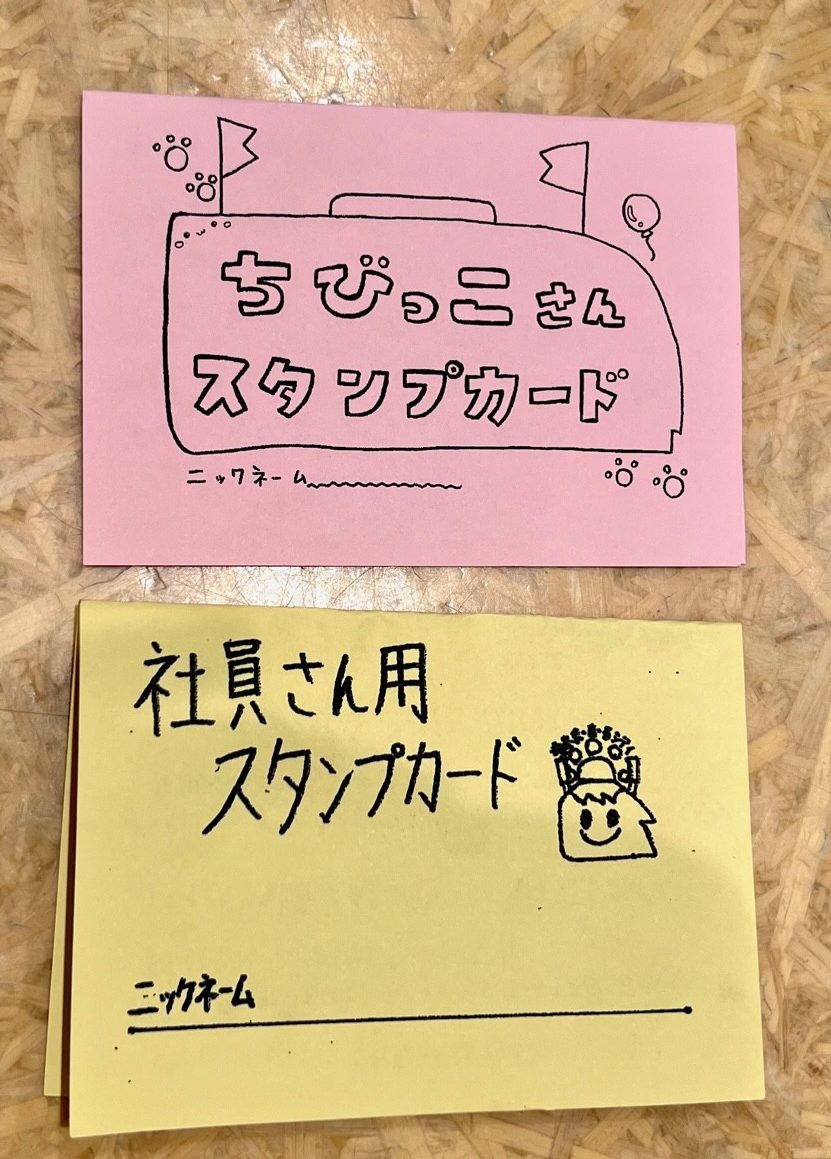 ちびっこさん
スタンプカード
ニックネーム
社員さん用
スタンプカード
ニックネーム